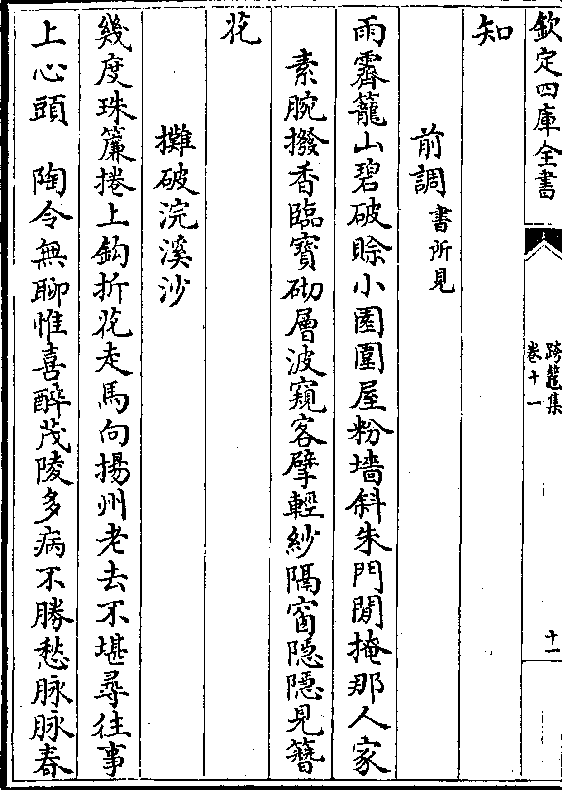 欽定四庫全書
跨鼇集
卷十一
十一
知
前調書所見
雨霽籠山碧破賒小園圍屋粉墻斜朱門閒掩那人家
素腕撥香臨寶砌層波窺客擘輕紗隔窗隱隱見簪
花
攤破浣溪沙
幾度珠簾捲上鈎折花走馬向揚州老去不堪尋往事
上心頭　陶令無聊惟喜醉茂陵多病不勝愁脉脉春